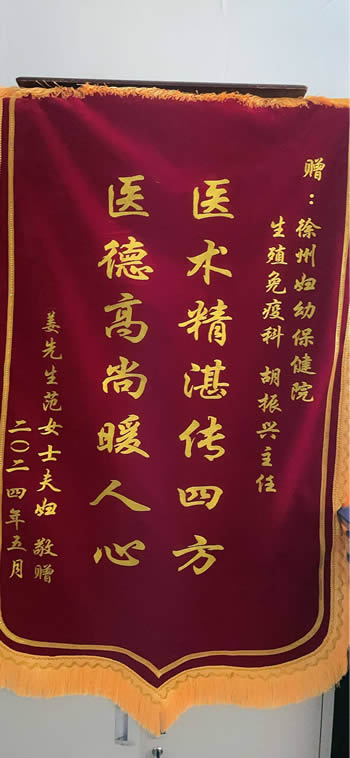 赠：徐州妇幼保健院
生殖免疫科 胡振兴主任
医术精湛传四方
医德高尚暖人心
姜先生范女士夫妇 敬赠
二〇二四年五月